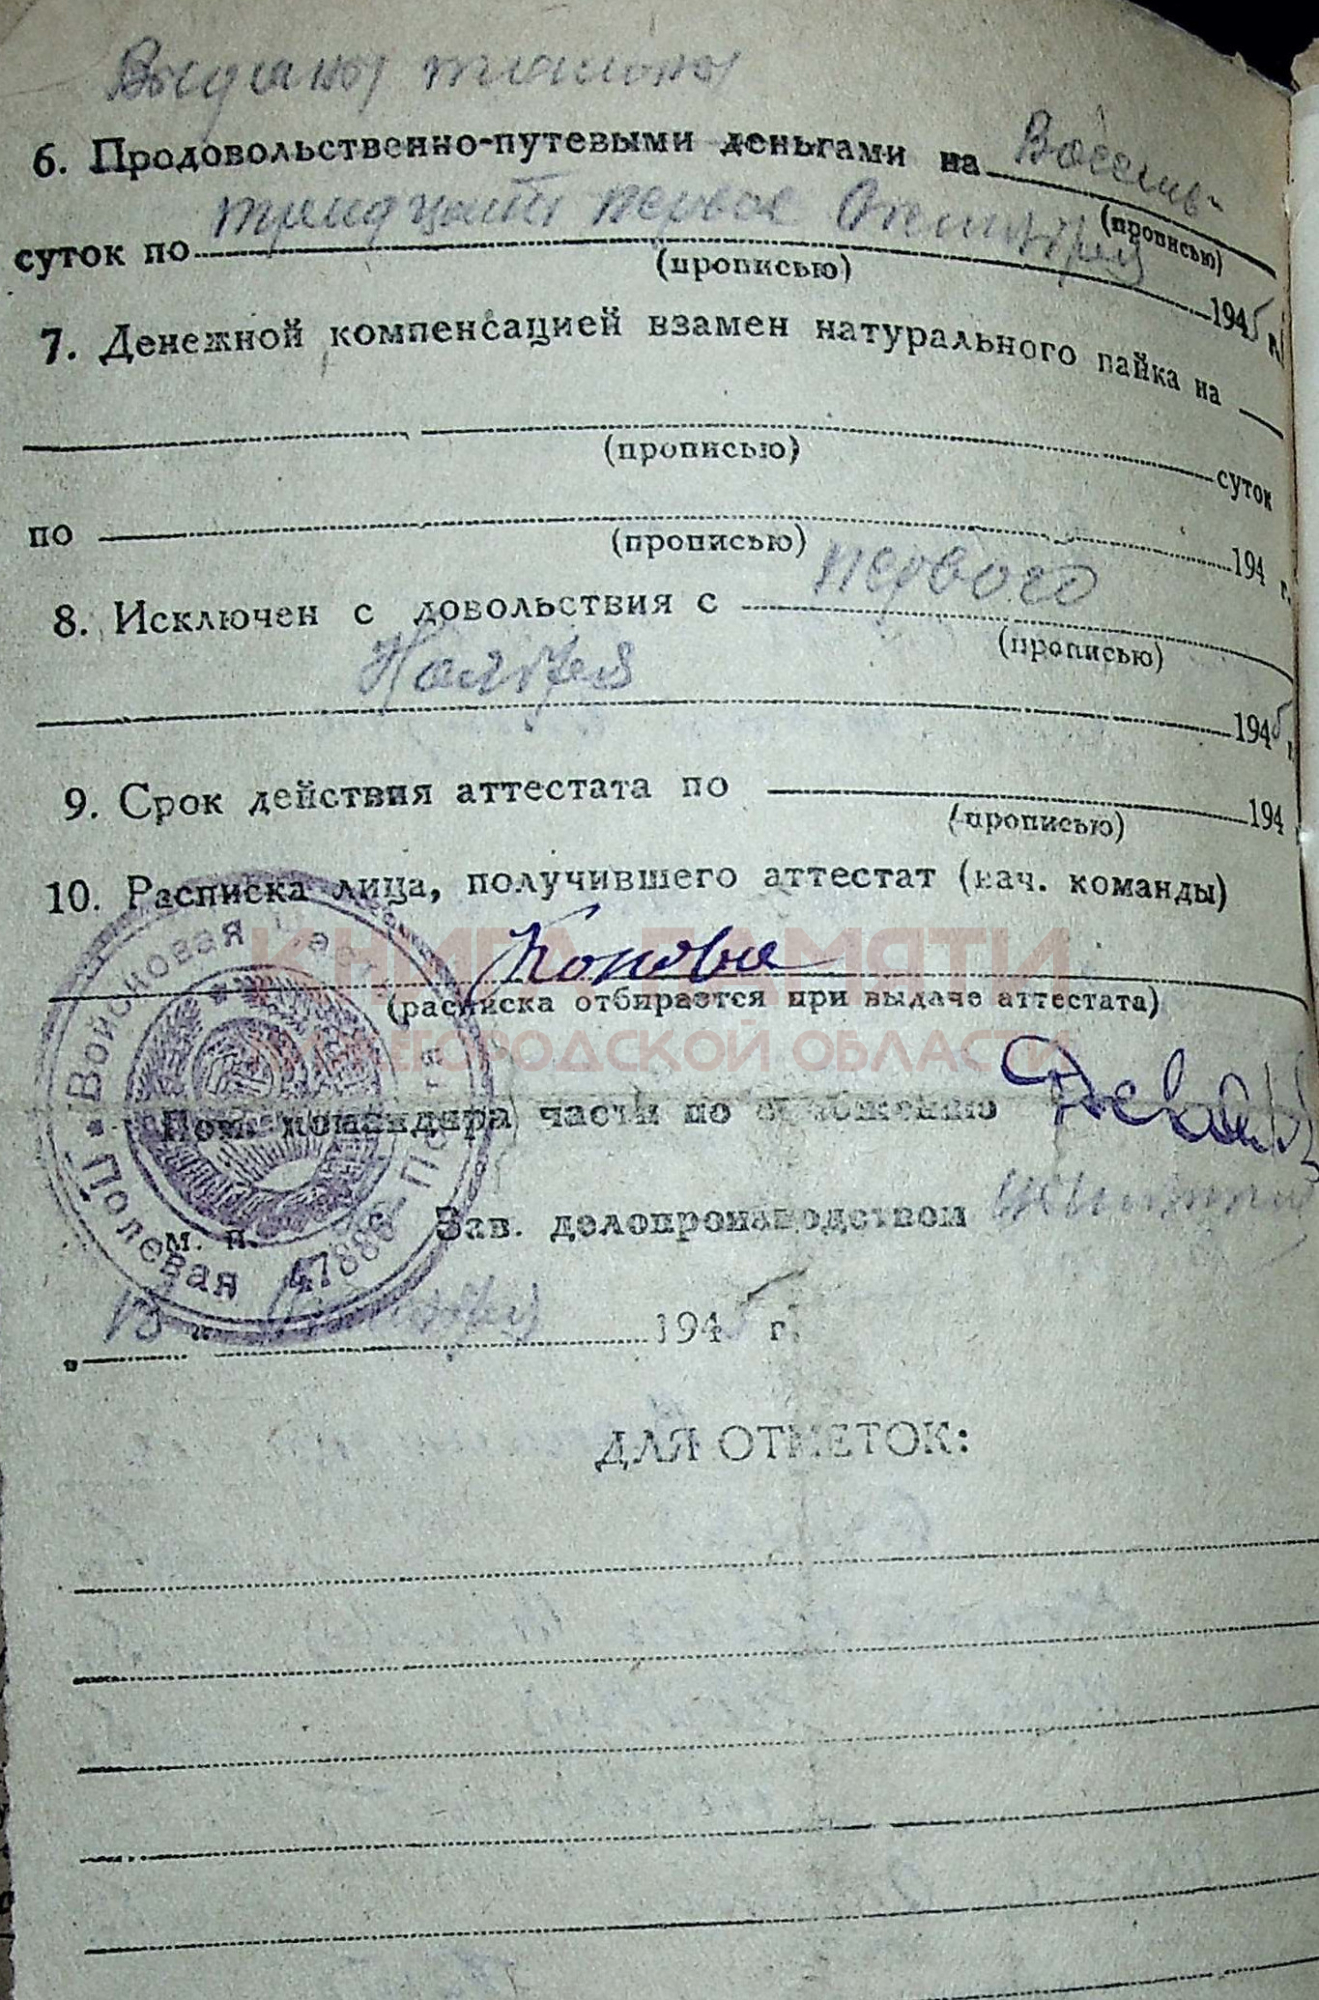 Выданы талоны
6. Продовольственно-путевыми деньгами на Восемь
(прописью)
суток по тридцать первое Октября 1945 г.
(прописью)
7. Денежной компенсацией взамен натурального пайка на
(прописью) суток
по 194 г.
(прописью)
8. Исключен с довольствия с первого
(прописью)
Ноября 1945 г.
9. Срок действия аттестата по 194
(прописью)
10. Расписка лица, получившего аттестат (нач. команды)
Попова
(расписка отбирается при выдаче аттестата)
КНИГА ПАМЯТИ
НИЖЕГОРОДСКОЙ ОБЛАСТИ
Пом. командира части по снабжению
Зав. делопроизводством
м. п.
Войсковая часть Полевая Почта 47888
" " Октября 1945 г.
ДЛЯ ОТМЕТОК: